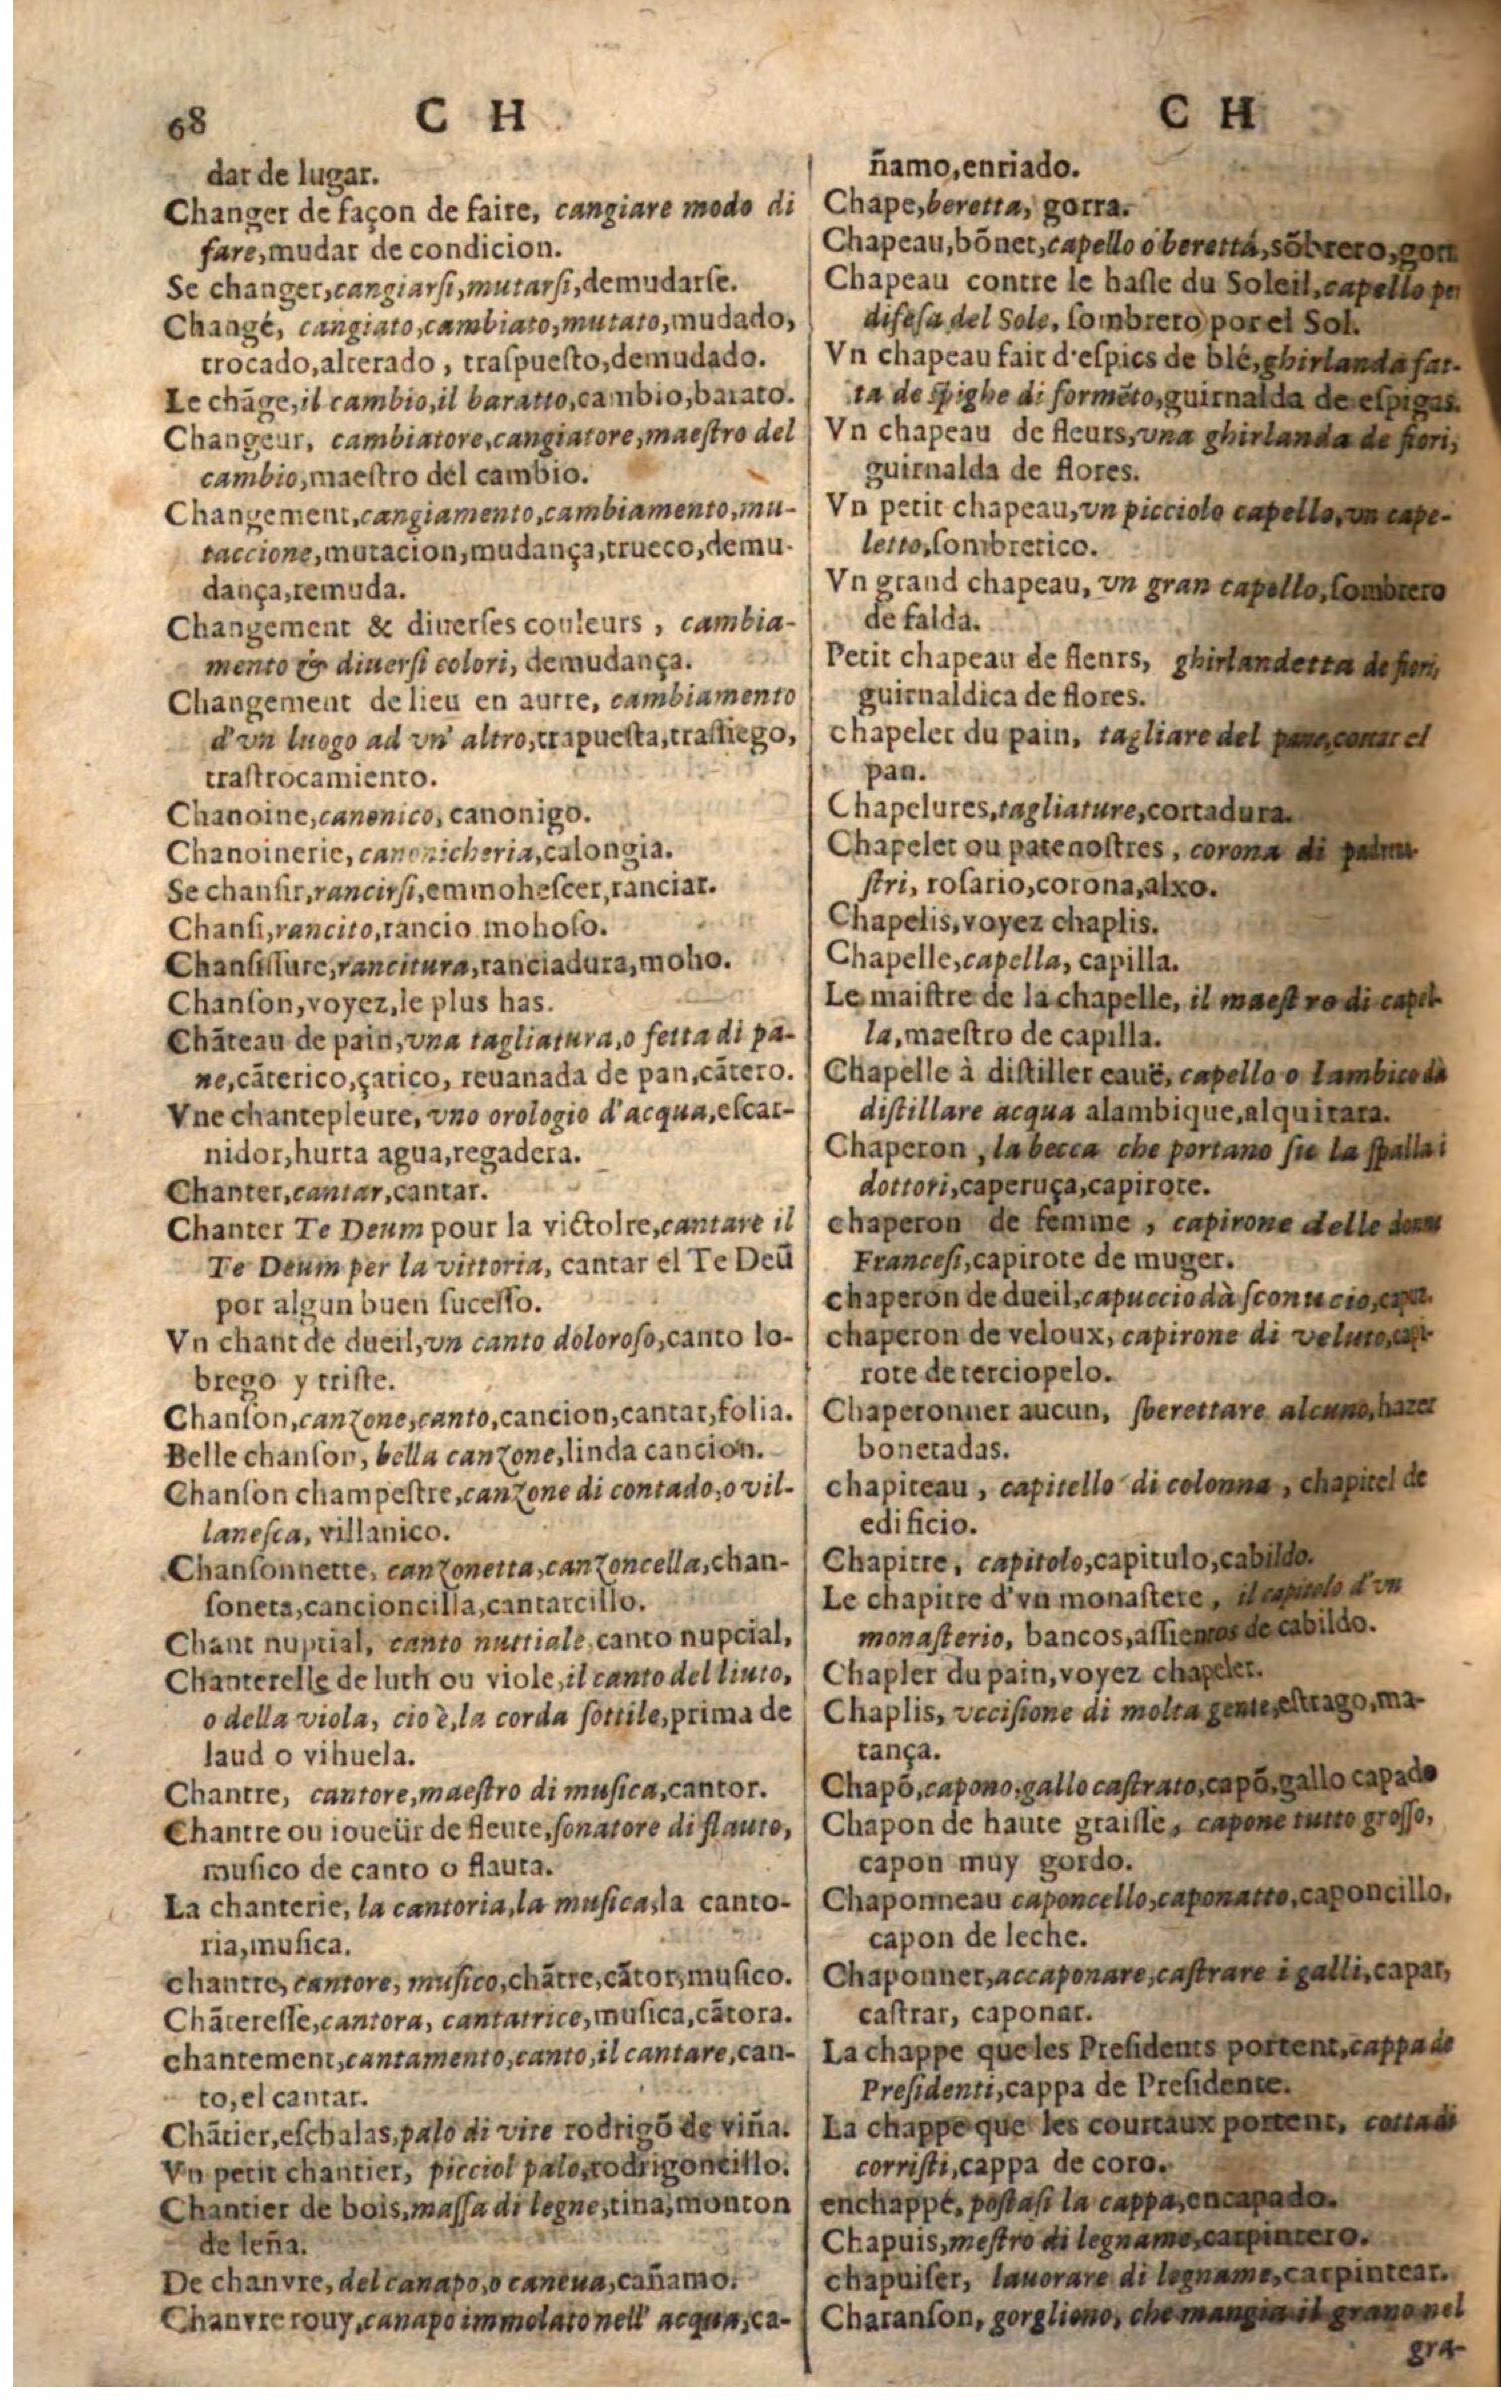 68 C H
dar de lugar.
Changer de façon de faire, cangiare modo di
fare,mudar de condicion.
Se changer,cangiarſi,mutarſi,demudarſe.
Changé, cangiato,cambiato,mutato,mudado,
trocado,alterado, traſpueſto,demudado.
Le chãge,il cambio,il baratto,cambio,barato.
Changeur, cambiatore,cangiatore,maeſtro del
cambio,maeſtro del cambio.
Changement,cangiamento,cambiamento,mu-
taccione,mutacion,mudança,trueco,demu-
dança,remuda.
Changement & diuerſes couleurs, cambia-
mento & diuerſi colori, demudança.
Changement de lieu en autre, cambiamento
d'vn luogo ad vn' altro,trapueſta,traſſiego,
traſtrocamiento.
Chanoine,canonico, canonigo.
Chanoinerie, canonicheria,calongia.
Se chanſir,rancirſi,emmoheſcer,ranciar.
Chanſi,rancito,rancio mohoſo.
Chanſiſſure,rancitura,ranciadura,moho.
Chanſon,voyez,le plus has.
Chãteau de pain,vna tagliatura,o fetta di pa-
ne,cãterico,çatico, reuanada de pan,cãtero.
Vne chantepleure, vno orologio d'acqua,eſcar-
nidor,hurta agua,regadera.
Chanter,cantar,cantar.
Chanter Te Deum pour la victoire,cantare il
Te Deum per la vittoria, cantar el Te Deũ
por algun buen ſuceſſo.
Vn chant de dueil,vn canto doloroſo,canto lo-
brego y triſte.
Chanſon,canzone,canto,cancion,cantar,folia.
Belle chanſon, bella canzone,linda cancion.
Chanſon champeſtre,canzone di contado,o vil-
laneſca, villanico.
Chanſonnette, canzonetta,canzoncella,chan-
ſoneta,cancioncilla,cantarcillo.
Chant nuptial, canto nuttiale,canto nupcial,
Chanterelle de luth ou viole,il canto del liuto,
o della viola, cio è,la corda ſottile,prima de
laud o vihuela.
Chantre, cantore,maeſtro di muſica,cantor.
Chantre ou ioueür de fleute,ſonatore di flauto,
muſico de canto o flauta.
La chanterie, la cantoria,la muſica,la canto-
ria,muſica.
chantre, cantore, muſico,chãtre,cãtor,muſico.
Chãtereſſe,cantora, cantatrice,muſica,cãtora.
chantement,cantamento,canto,il cantare,can-
to,el cantar.
Chãtier,eſchalas,palo di vite rodrigõ de viña.
Vn petit chantier, picciol palo,rodrigoncillo.
Chantier de bois,maſſa di legne,tina,monton
de leña.
De chanvre, del canapo,o caneua,cañamo.
Chanvre rouy,canapo immolato nell' acqua,ca-
C H
ñamo,enriado.
Chape,beretta, gorra.
Chapeau,bõnet,capello o beretta,sõbrero,gorr
Chapeau contre le haſle du Soleil,capello per
difeſa del Sole, ſombrero por el Sol.
Vn chapeau fait d'eſpics de blé,ghirlanda fat-
ta de ſpighe di formẽto,guirnalda de eſpigas.
Vn chapeau de fleurs,vna ghirlanda de fiori,
guirnalda de flores.
Vn petit chapeau,vn picciolo capello,vn cape-
letto,ſombretico.
Vn grand chapeau, vn gran capello,ſombrero
de falda.
Petit chapeau de flenrs, ghirlandetta de fiori,
guirnaldica de flores.
chapeler du pain, tagliare del pane,cortar el
pan.
Chapelures,tagliature,cortadura.
Chapelet ou patenoſtres, corona di
ſtri, roſario,corona,alxo.
Chapelis,voyez chaplis.
Chapelle,capella, capilla.
Le maiſtre de la chapelle, il maeſtro di capel-
la,maeſtro de capilla.
Chapelle à diſtiller eauë, capello o lambico dà
diſtillare acqua alambique,alquitara.
Chaperon, la becca che portano ſu la ſpalla i
dottori,caperuça,capirote.
chaperon de femme, capirone delle donne
Franceſi,capirote de muger.
chaperon de dueil,capuccio dà ſconucio,
chaperon de veloux, capirone di veluto,capi-
rote de terciopelo.
Chaperonner aucun, ſberettare alcuno,hazer
bonetadas.
chapiteau, capitello di colonna, chapitel de
edificio.
Chapitre, capitolo,capitulo,cabildo.
Le chapitre d'vn monaſtere, il capitolo d'vn
monaſterio, bancos,aſſientos de cabildo.
Chapler du pain,voyez chapeler.
Chaplis, vcciſione di molta gente,eſtrago,ma-
tança.
Chapõ,capono,gallo caſtrato,capõ,gallo capado
Chapon de haute graiſſe, capone tutto groſſo,
capon muy gordo.
Chaponneau caponcello,caponatto,caponcillo,
capon de leche.
Chaponner,accaponare,caſtrare i galli,capar,
caſtrar, caponar.
La chappe que les Preſidents portent,cappa de
Preſidenti,cappa de Preſidente.
La chappe que les courtaux portent, cotta di
corriſti,cappa de coro.
enchappé, poſtaſi la cappa,encapado.
Chapuis,meſtro di legname,carpintero.
chapuiſer, lauorare di legname,carpintear.
Charanſon, gorgliono, che mangia il grano nel
gra-